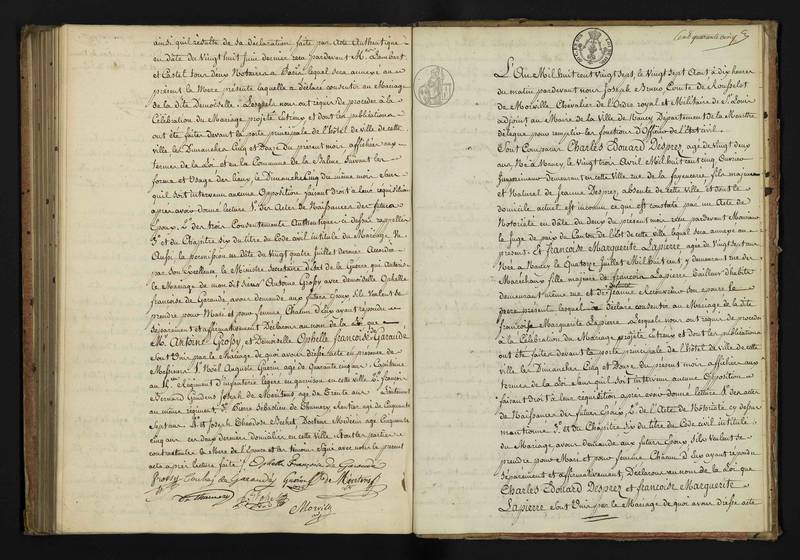 ainsi qu'il résulte de sa déclaration faite par acte Authentique
en date du Vingt huit Juin dernier reçu pardevant Me Lambert
et Castel tous deux Notaires à Paris lequel sera annexé au
présent la Mère présente laquelle a déclaré consentir au Mariage
de la dite Demoiselle. Lesquels nous ont requis de procéder à la
Célébration du Mariage projeté entr'eux et dont les publications
ont été faites devant la porte principale de l'hôtel de Ville de cette
ville les Dimanches Cinq et Douze du présent mois affichées aux
termes de la Loi et en la Commune de la Balme suivant les
formes et Usages des lieux, le Dimanche Cinq du même mois sans
qu'il soit intervenu aucune Opposition faisant droit à leur réquisition
après avoir donné lecture 1° des Actes de Naissances des futurs
Epoux, 2° des trois Consentements Authentiques ci dessus rappelés
3° et du Chapitre six du titre du Code civil intitulé du Mariage.
Aussi la permission en date du Vingt quatre Juillet dernier Accordée
par son Excellence le Ministre Secrétaire d'Etat de la Guerre qui autorise
le Mariage de mon dit Sieur Antoine Grossy avec demoiselle Ophelle
françoise de Garaudé avons demandé aux futurs Epoux s'ils Veulent se
prendre pour Mari et pour femme, Chacun d'eux ayant répondu
séparément et affirmativement Déclarons au nom de la Loi que
Mr. Antoine Grossy et Demoiselle Ophelle françoise de Garaudé
sont Unis par le Mariage de quoi avons dressé acte en présence de
Messieurs 1° Noël Auguste Guérin âgé de Quarante cinq ans, Capitaine
au Régiment d'infanterie légère en garnison en cette ville 2° françois
Bernard Joseph de Montlois âgé de Trente ans Lieutenant
au même régiment, 3° Pierre Sébastien de Thumery rentier âgé de Cinquante
Sept ans, 4° et Joseph Théodose Bechet, Docteur Médecin âgé Cinquante
Cinq ans ces deux derniers domiciliés en cette ville, et ont les parties
contractantes la Mère de l'Epouse et les témoins signé avec nous le présent
acte après lecture faite. Ophelle Françoise de Garaudé
Grossy de Garaudé Guérin de Montlois
de Thumery Morville
Cent quarante cinq
L'An Mil huit cent Vingt Sept, le Vingt sept Août à dix heures
du matin pardevant nous Joseph Bruno Comte de Rousselot
de Morville, Chevalier de l'Ordre royal et Militaire de St. Louis
adjoint au Maire de la Ville de Nancy Département de la Meurthe
délégué pour remplir les fonctions d'Officier de l'Etat civil.
Sont Comparus Charles Edouard Desprez, âgé de Vingt deux
ans Né à Nancy, le Vingt trois Avril Mil huit cent cinq Ouvrier
Imprimeur demeurant en cette Ville rue de la fayencerie, fils majeur
et Naturel de Jeanne Desprez absente de cette ville, et dont le
domicile actuel est inconnu ce qui est constaté par un Acte de
Notoriété en date du Deux du présent mois reçu pardevant Monsieur
le Juge de paix du Canton de l'Est de cette ville lequel sera annexé au
présent. Et françoise Marguerite Lapierre âgée de Vingt sept ans
Née à Nancy le Quatorze Juillet Mil huit cent, y demeurant rue des
Maréchaux fille majeure de françois Lapierre Tailleur d'habits
demeurant même rue et de Jeanne son épouse le
père présent lequel a déclaré consentir au Mariage de la dite
françoise Marguerite Lapierre. Lesquels nous ont requis de procéder
à la Célébration du Mariage projeté entr'eux et dont les publications
ont été faites devant la porte principale de l'hôtel de ville de cette
ville les Dimanches Cinq et Douze du présent mois affichées aux
termes de la Loi sans qu'il soit intervenu aucune Opposition
faisant droit à leur réquisition après avoir donné lecture 1° des actes
de Naissances des futurs Epoux, 2° de l'Acte de Notoriété cy dessus
mentionné 3° et du Chapitre six du titre du Code civil intitulé
du Mariage, avons demandé aux futurs Epoux s'ils Veulent se
prendre pour Mari et pour femme Chacun d'eux ayant répondu
séparément et affirmativement, Déclarons au nom de la Loi que
Charles Edouard Desprez et françoise Marguerite
Lapierre sont Unis par le Mariage de quoi avons dressé acte